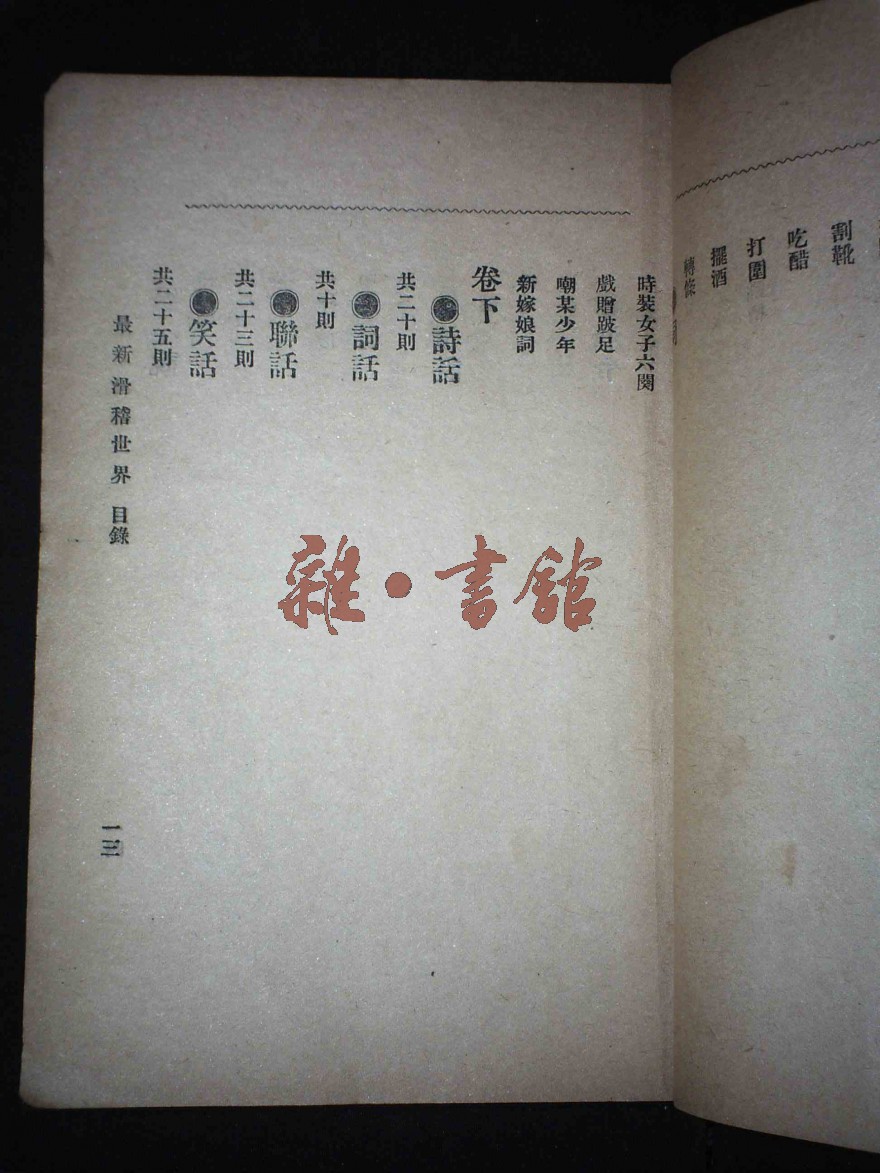 割靴
吃醋
打圍
擺酒
轉條
時裝女子六闋
戲贈跛足
嘲某少年
新嫁娘詞
卷下
詩話
共二十則
詞話
共十則
聯話
共二十三則
笑話
共二十五則
最新滑稽世界 目錄
一三
雜·書館